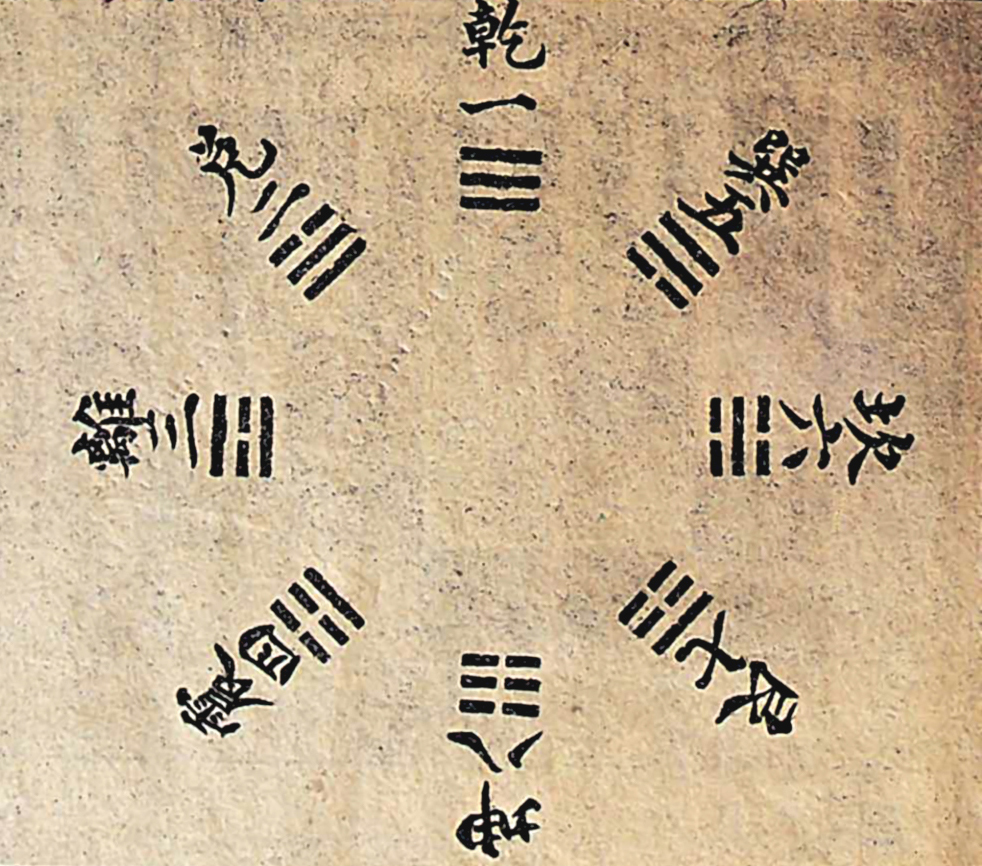 乾一
兌二
離三
震四
巽五
坎六
艮七
坤八